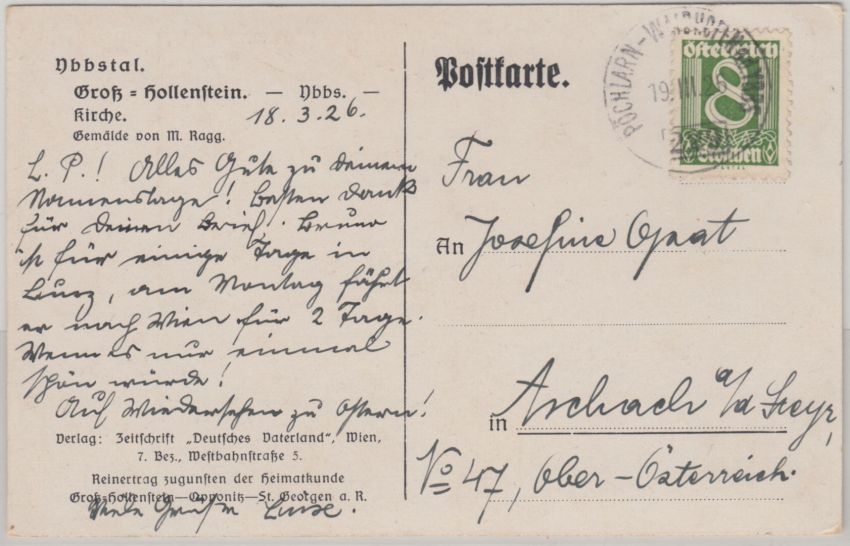 Ybbstal.
Groß-Hollenstein. — Ybbs. —
Kirche. 18.3.26.
Gemälde von M. Ragg.
L. P.! Alles Gute zu Deinem
Namenstage! Besten Dank
für Deinen Brief. Bruno
ist für einige Tage in
Lunz, am Montag fährt
er nach Wien für 2 Tage.
Wenn es nur einmal
schön würde!
Auf Wiedersehen zu Ostern!
Verlag: Zeitschrift „Deutsches Vaterland“, Wien,
7. Bez., Westbahnstraße 5.
Reinertrag zugunsten der Heimatkunde
Groß-Hollenstein—Opponitz—St. Georgen a. R.
Viele Grüße Luise.
Postkarte.
PÖCHLARN-WAIDHOFEN
19.III.26
österreich
8
Groschen
Frau
An Josefine Opat
in Aschach a/d Steyr,
No 47, Ober-Österreich.